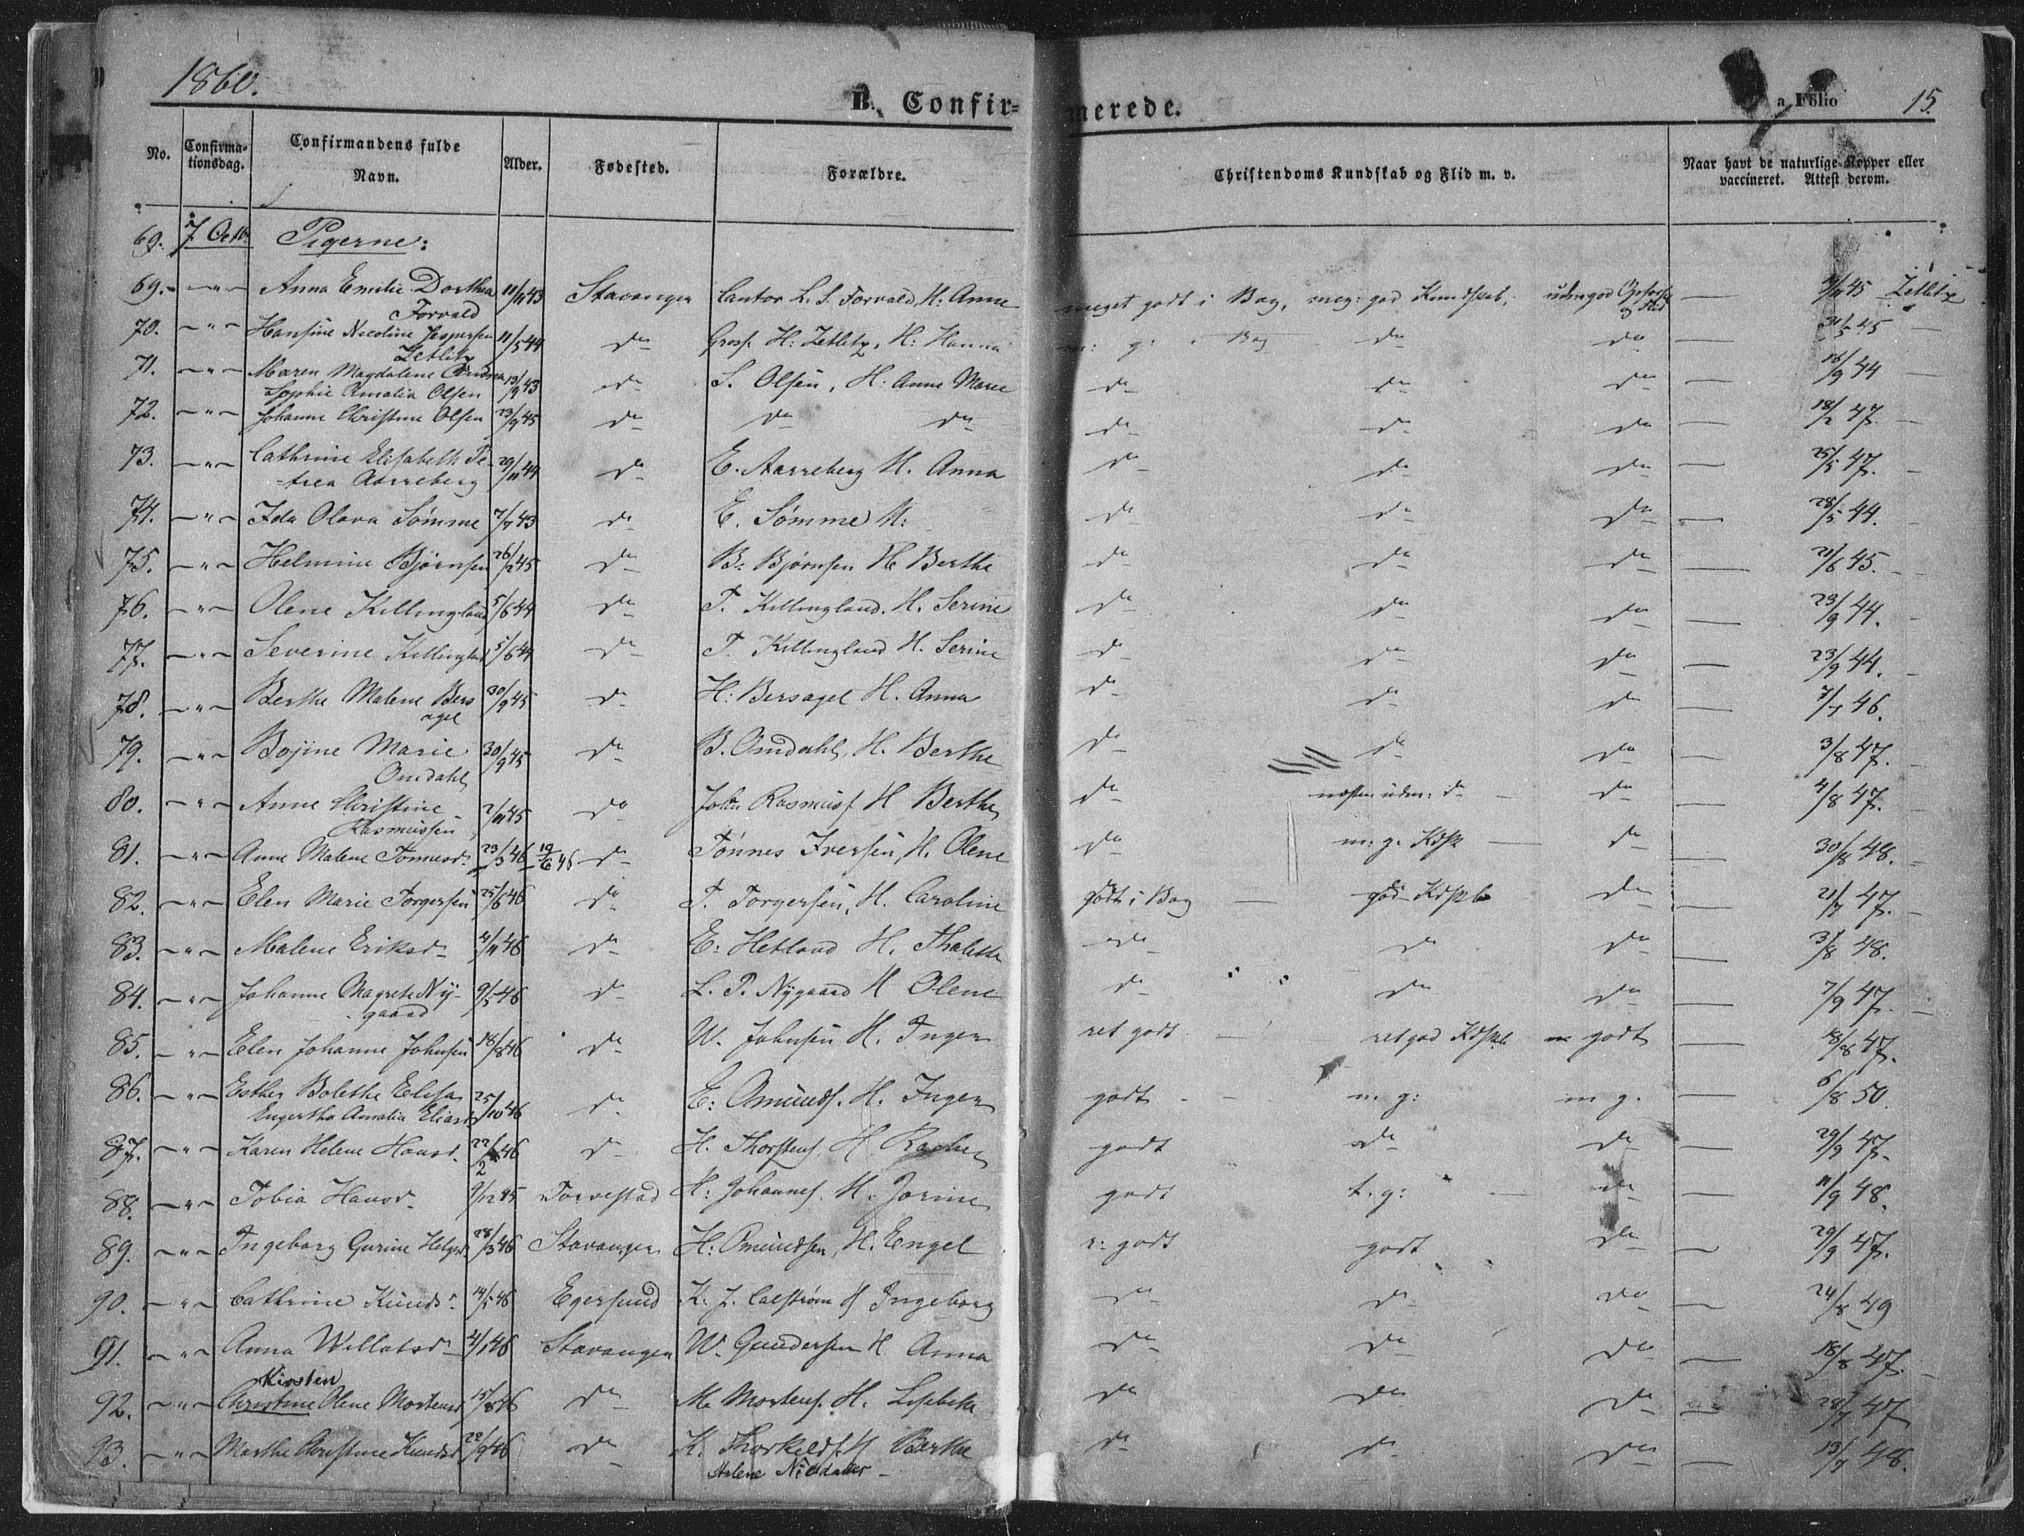 1860.
B. Confirmerede.
a Folio 15.
No. Confirmationsdag. Confirmandens fulde Navn. Alder. Fødested. Forældre. Christendoms Kundskab og Flid m. v. Naar havt de naturlige Kopper eller vaccineret. Attest derom.
69. 7 Octb Pigerne:
69. — " — Anna Emilie Dorthea 11/11 43 Stavanger Cantor L. S. Forvald, H: Anne meget godt i Bog, meg: god Kundskab, udm god Opførsel og Flid — 9/11 45 Zetlitz
Forvald
70. — " — Hansine Nicoline Jespersen 11/5 44 do Gross: H: Zetlitz, H: Hanna m: g: i Bog do do — 31/5 45 —
Zetlitz
71. — " — Maren Magdalene Andrea 13/9 43 do S. Olsen, H: Anne Marie do do do — 16/9 44
Sophie Amalia Olsen
72. — " — Johanne Christine Olsen 23/9 45 do do do do do do — 18/2 47. —
73. — " — Cathrine Elisabeth Pe- 29/11 44 do E. Aarreberg H. Anna do do do — 25/5 47. —
trea Aarreberg
74. — " — Ida Olava Sømme 7/7 43 do E. Sømme H: do do do — 28/5 44. —
75. — " — Helmine Bjørnsen 26/2 45 do B: Bjørnsen H Berthe do do do — 21/6 45. —
76. — " — Olene Killingland 5/6 44 do T. Killingland. H. Serine do do do — 23/9 44. —
77. — " — Severine Killingld 5/6 44 do T. Killingland H. Serine do do do — 23/9 44. —
78. — " — Berthe Malene Bers 30/9 45 do H: Bersagel H. Anna do do do — 7/7 46.
agel
79. — " — Bojine Marie 30/9 45 do B. Omdahl, H. Berthe do do do — 3/8 47. —
Omdahl
80. — " — Anne Christine 2/11 45 do John Rasmuss. H Berthe do næsten udm: do do — 4/8 47. —
Rasmussen
81. — " — Anne Malene Tønnesd. 23/3 46 19/6 46 do Tønnes Iversen, H. Olene do m: g: Kdsk — do — 30/8 48. —
82. — " — Elen Marie Torgersen 25/6 46 do T. Torgersen, H. Caroline godt i Bog — god Kdskb do — 21/7 47. —
83. — " — Malene Eriksd. 4/11 46 do E: Hetland H. Thalette do do do — 3/8 48.
84. — " — Johanne Magrete Ny- 9/5 46 do L. P. Nygaard H Olene do do do — 7/9 47. —
gaard
85. — " — Elen Johanne Johnsen 18/8 46 do W. Johnsen H. Inger ret godt — ret god Kdskb m godt — 18/8 47.
86. — " — Esther Bolethe Elisa 25/10 46 do E: Omunds. H. Inger godt — m. g: m g. — 6/8 50.
Engertha Amalia Eliasd
87. — " — Karen Helene Hansd. 22/2 46 do H. Thorstens. H. Rachel godt do do — 29/9 47.
88. — " — Tobia Hansd. 9/12 45 Torvestad H: Johannes. H. Jorine godt t. g: — do — 11/9 48.
89. — " — Ingeborg Gurine Helgesd 28/3 46 Stavanger H: Omundsen, H. Engel r: godt godt do — 29/9 47.
90. — " — Cathrine Knuds. 14/5 46 Egersund K. J. Calstrøm H Ingeborg do do do — 24/8 49
91. — " — Anna Willatsd 4/1 46 Stavanger W. Gundersen H Anna do do do — 18/8 47.
Kirsten
92. — " — Christine Olene Mortensd 15/8 46 do M. Mortens. H. Lisbeth do do do — 28/7 47
93. — " — Marthe Christine Knudsd 22/9 46 do K. Thorkelds. H Berthe do do do — 13/7 48.
Helene Nilsdatter